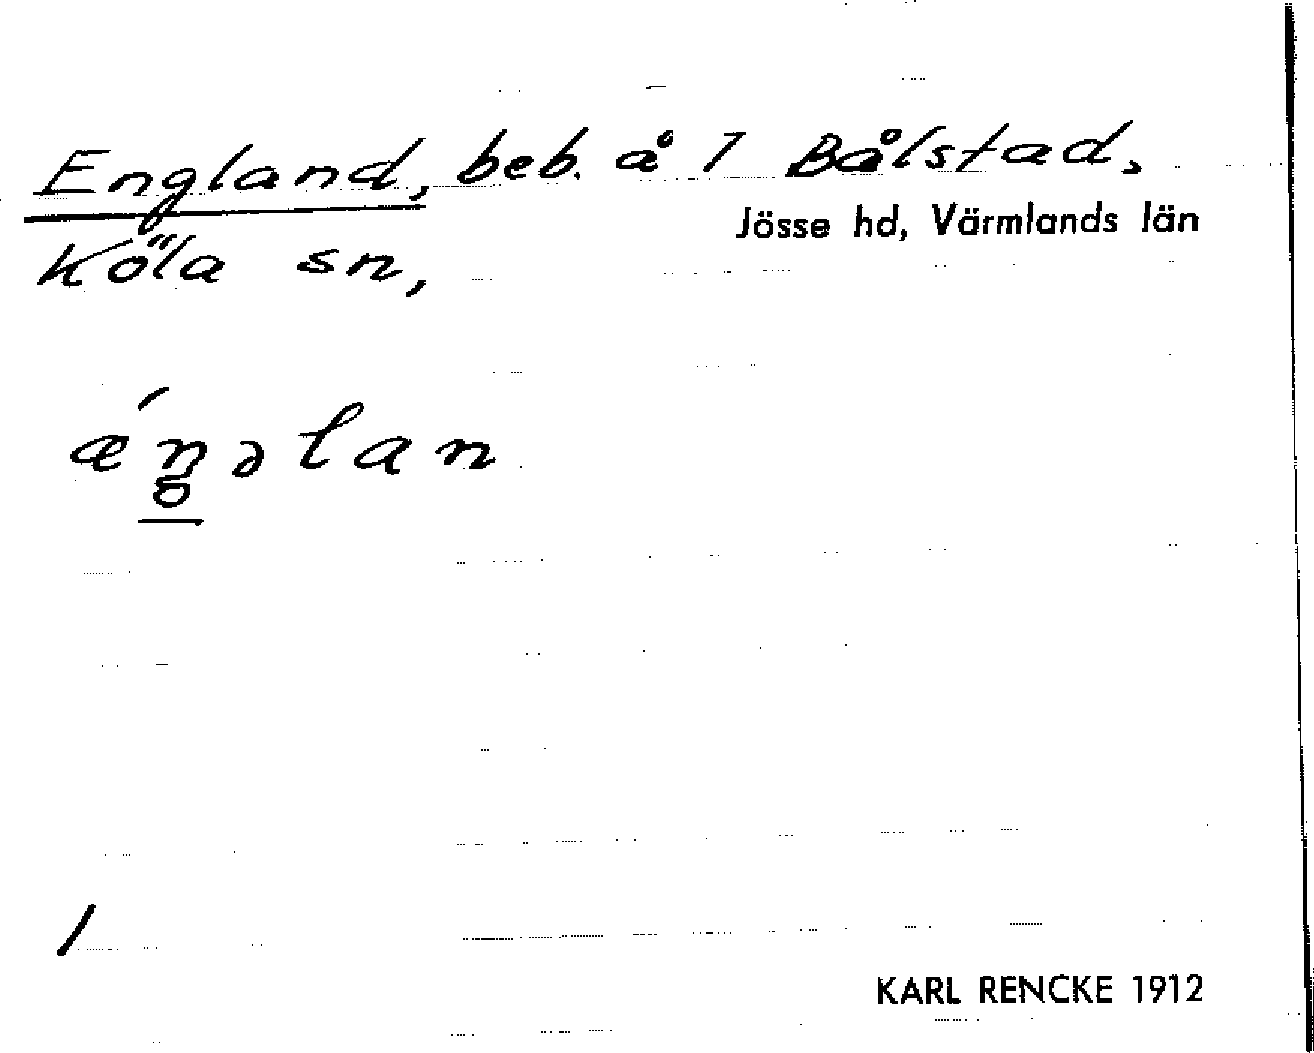 England, beb. å 1 Bålstad,
Jösse hd, Värmlands län
Köla sn,
ǽŋəlan
1
KARL RENCKE 1912